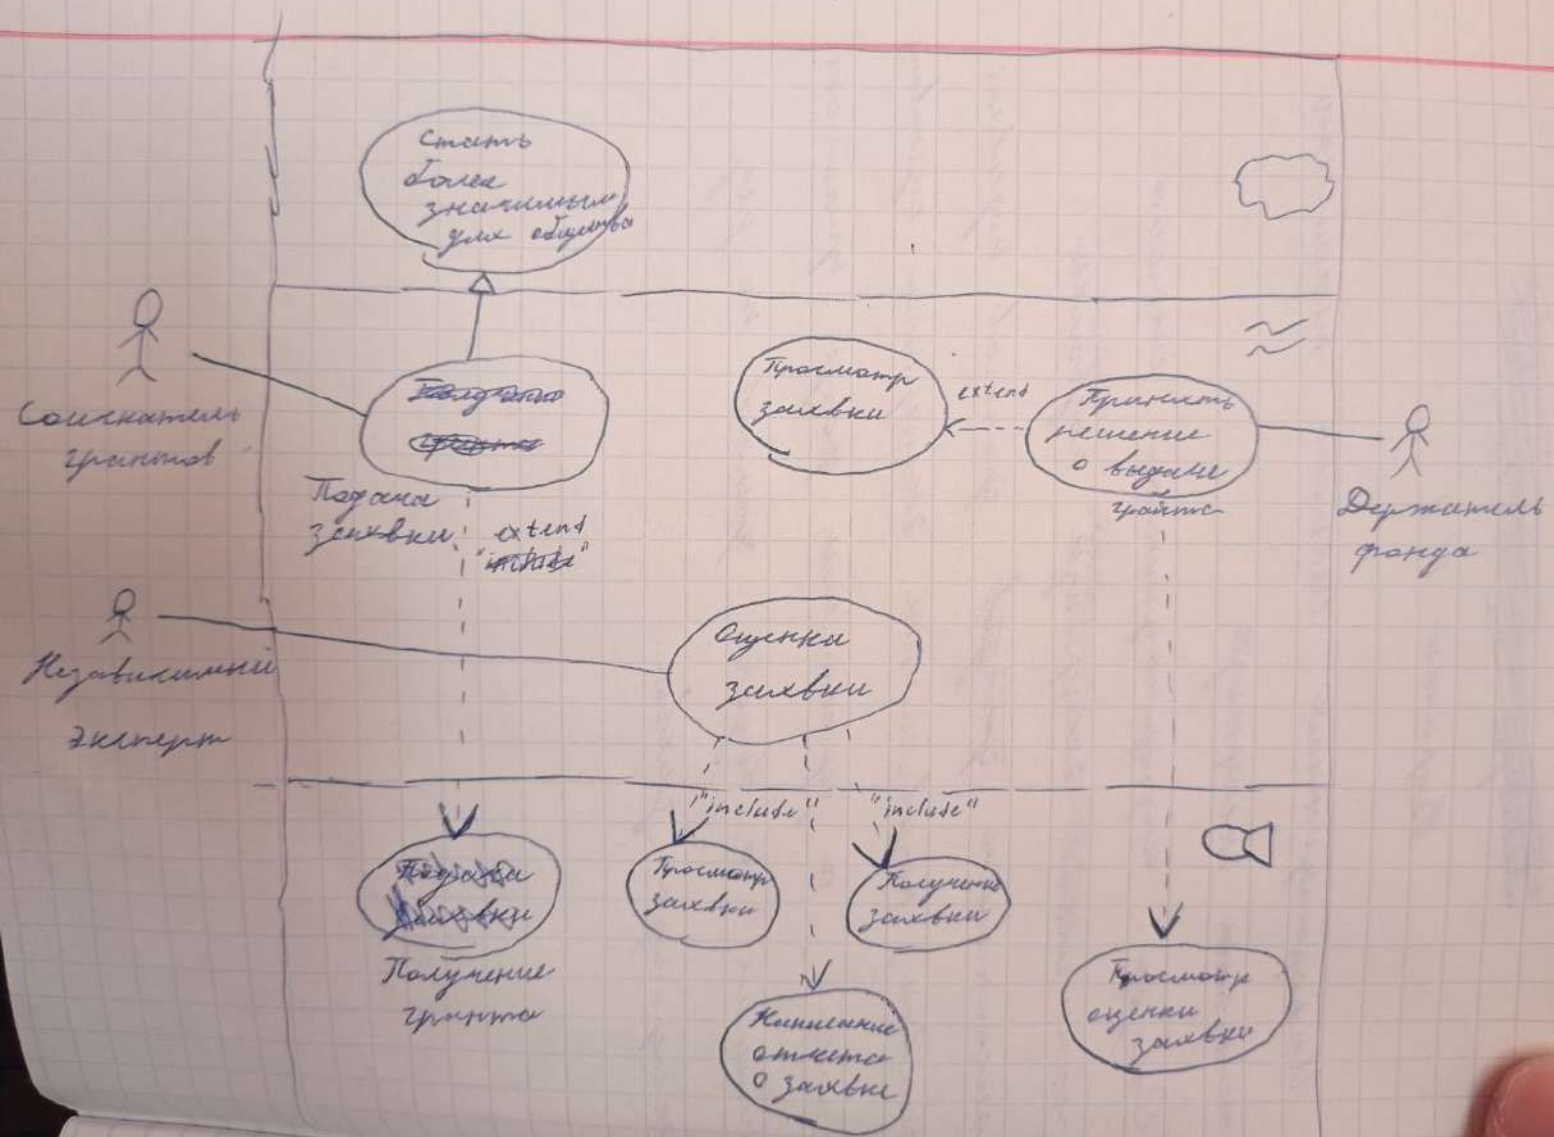 Стать
более
значимым
для общества
Соискатель
грантов
Получение
гранта
Подача
заявки
extend
"include"
Просмотр
заявки
extend
Принять
решение
о выдаче
гранта
Держатель
фонда
Независимый
эксперт
Оценка
заявки
"include"
"include"
Подача
заявки
Получение
гранта
Просмотр
заявки
Получение
заявки
Написание
отчета
о заявке
Просмотр
оценки
заявки